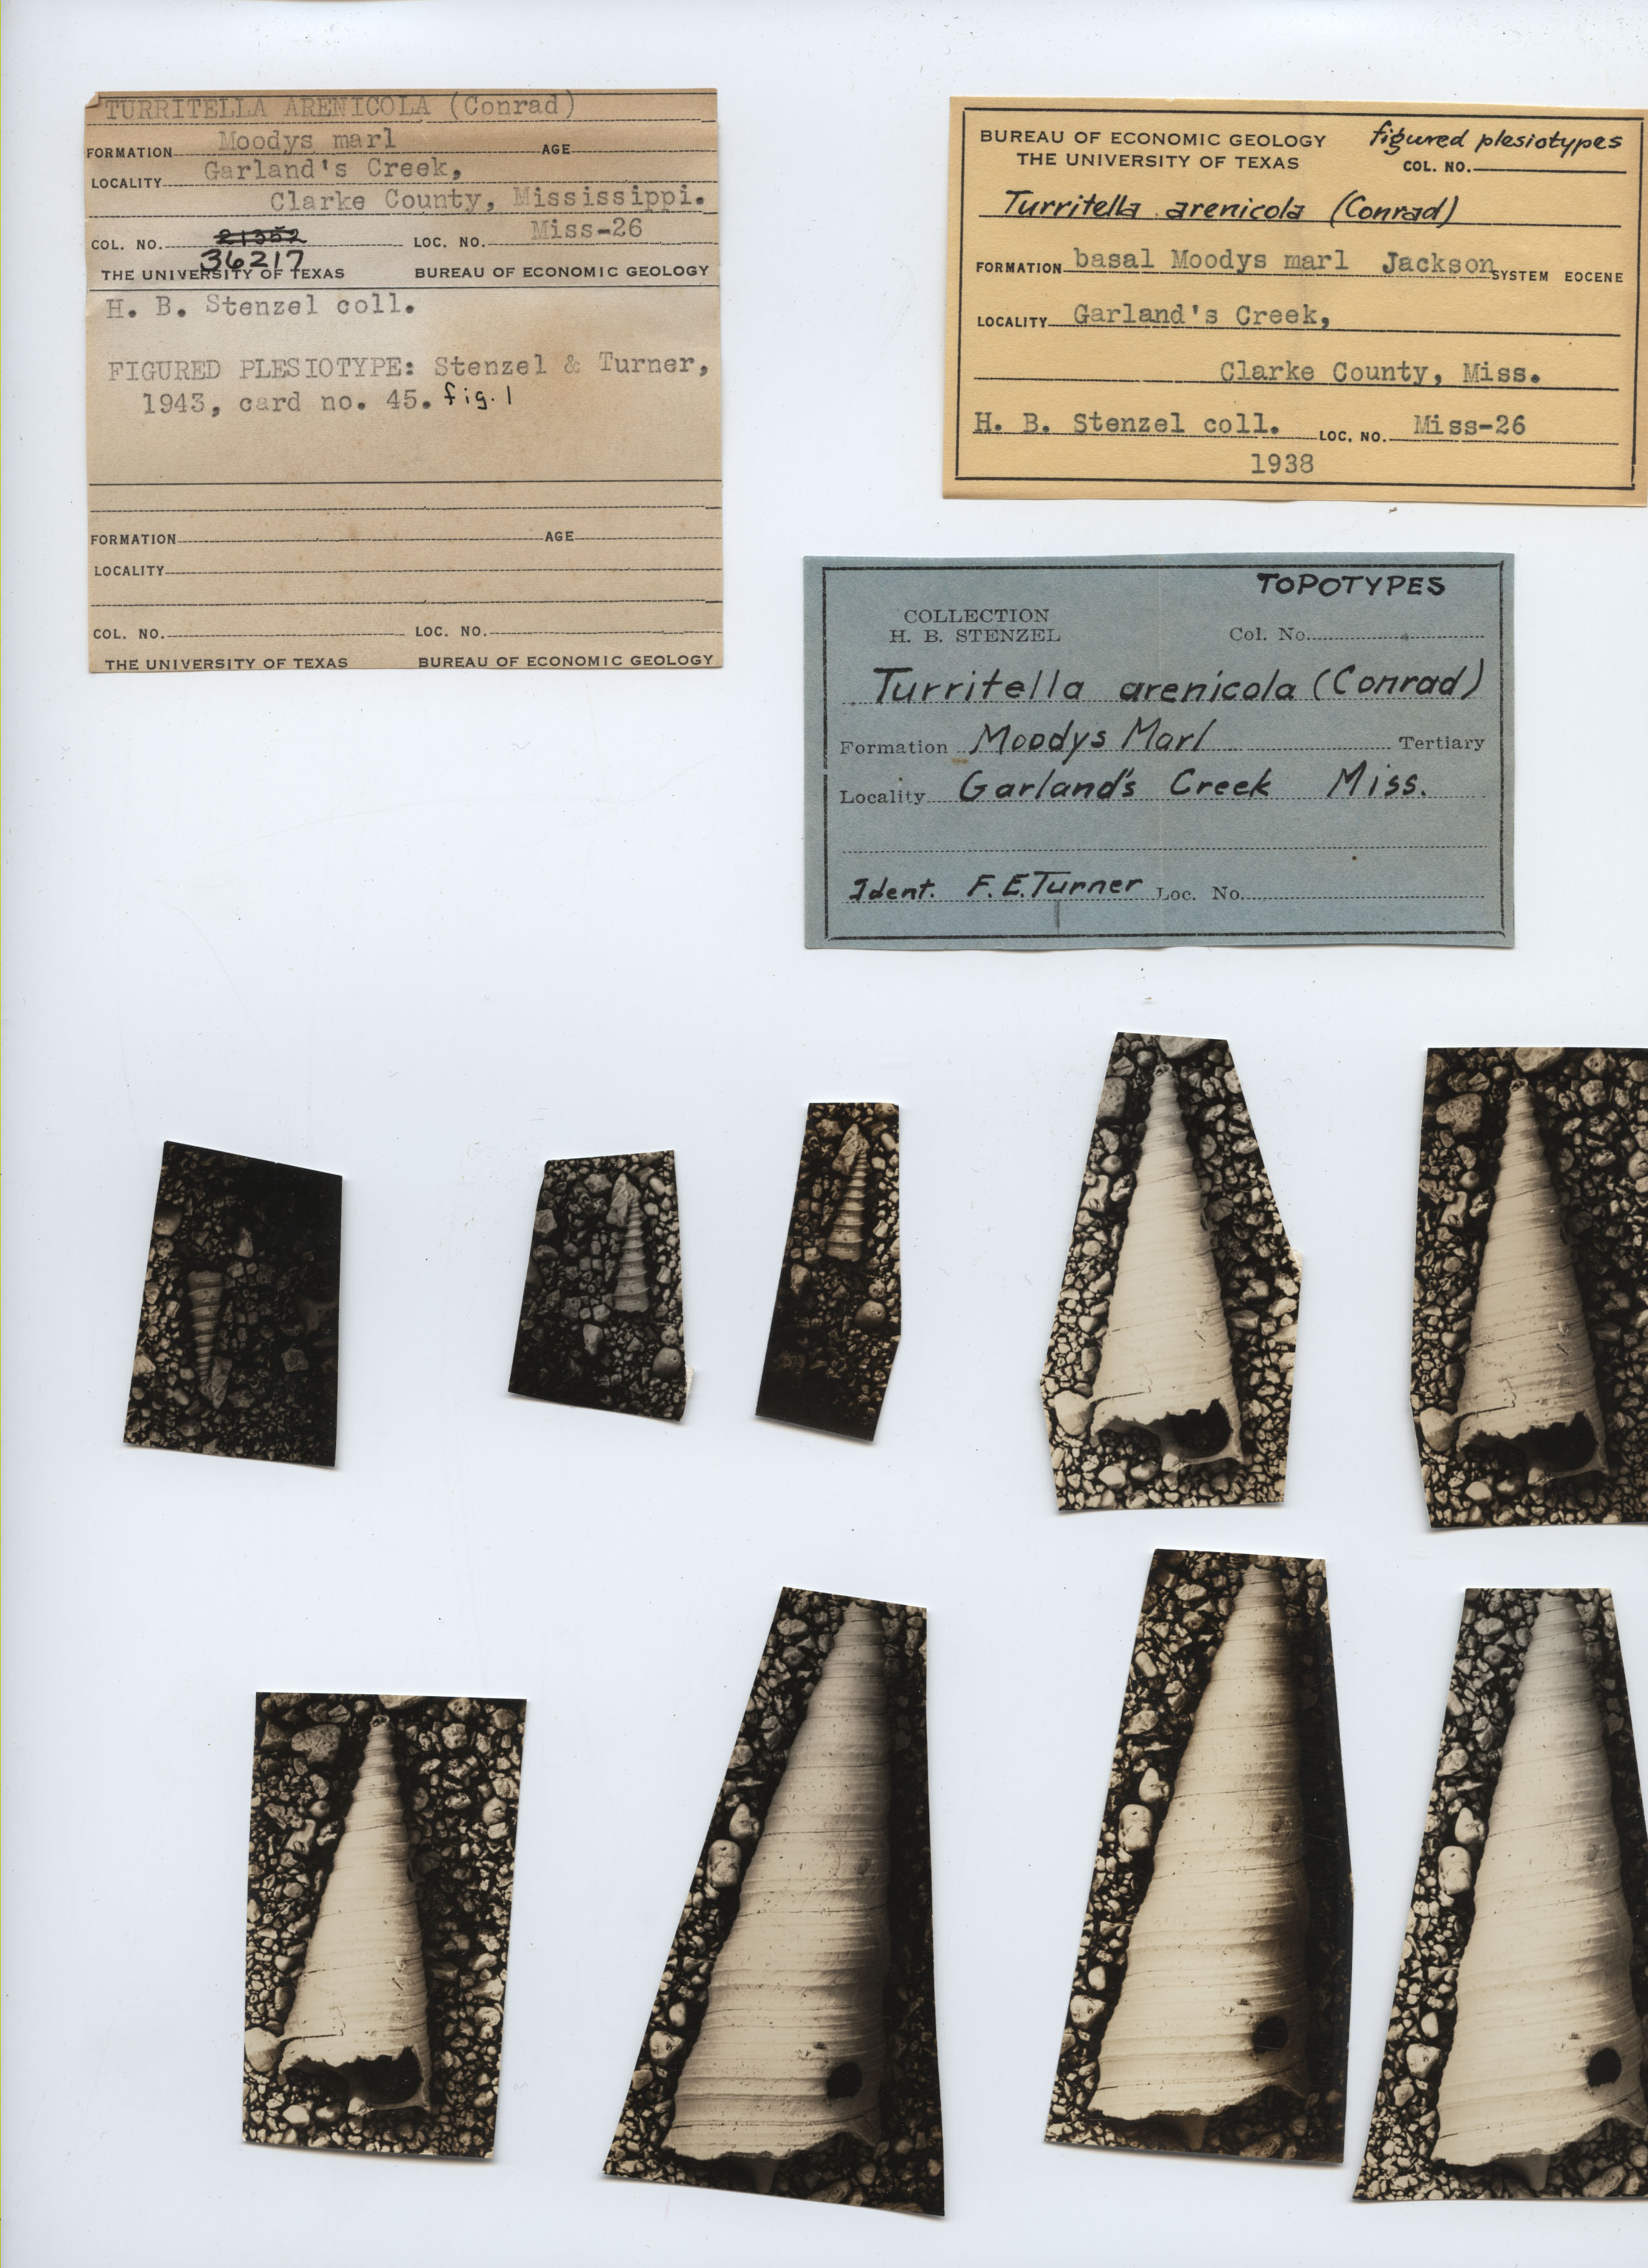 TURRITELLA ARENICOLA (Conrad)
FORMATION Moodys marl AGE
LOCALITY Garland's Creek,
Clarke County, Mississippi.
COL. NO. 21352 LOC. NO. Miss-26
36217
THE UNIVERSITY OF TEXAS BUREAU OF ECONOMIC GEOLOGY
H. B. Stenzel coll.
FIGURED PLESIOTYPE: Stenzel & Turner,
1943, card no. 45. fig. 1
FORMATION AGE
LOCALITY
COL. NO. LOC. NO.
THE UNIVERSITY OF TEXAS BUREAU OF ECONOMIC GEOLOGY
BUREAU OF ECONOMIC GEOLOGY figured plesiotypes
THE UNIVERSITY OF TEXAS COL. NO.
Turritella arenicola (Conrad)
FORMATION basal Moodys marl Jackson SYSTEM EOCENE
LOCALITY Garland's Creek,
Clarke County, Miss.
H. B. Stenzel coll. LOC. NO. Miss-26
1938
TOPOTYPES
COLLECTION
H. B. STENZEL Col. No.
Turritella arenicola (Conrad)
Formation Moodys Marl Tertiary
Locality Garland's Creek Miss.
Ident. F. E. Turner Loc. No.